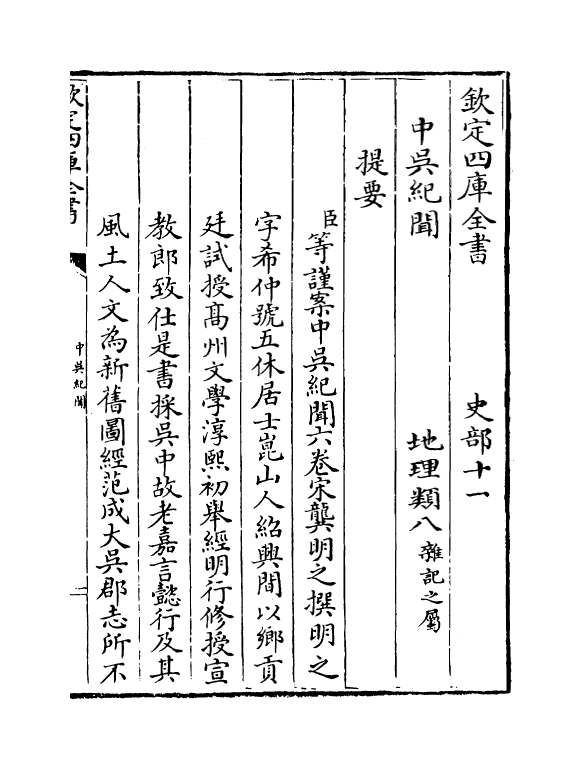 欽定四庫全書　史部十一
中吳紀聞　地理類八雜記之屬
提要
臣等謹案中吳紀聞六卷宋龔明之撰明之
字希仲號五休居士崑山人紹興間以鄉貢
廷試授髙州文學淳熙初舉經明行修授宣
教郎致仕是書採吳中故老嘉言懿行及其
風土人文為新舊圖經范成大吳郡志所不
欽定四庫全書
中吳紀聞